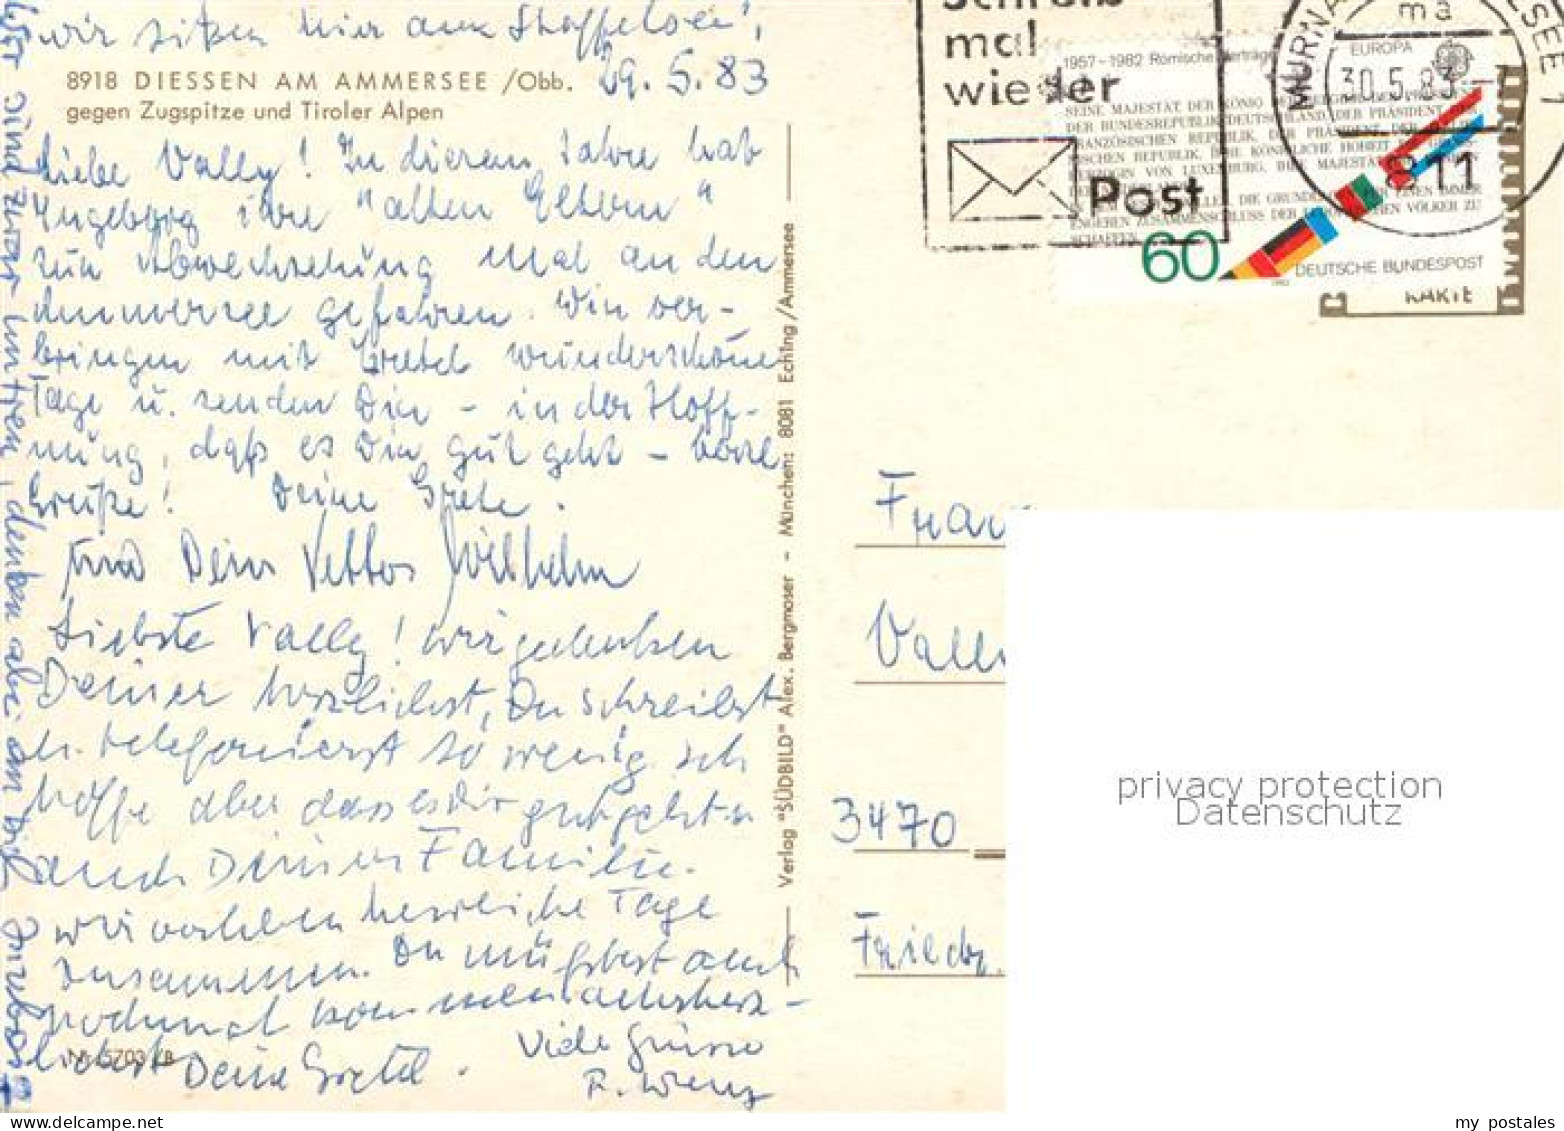 wir sitzen hier am Staffelsee!
8918 DIESSEN AM AMMERSEE /Obb.
gegen Zugspitze und Tiroler Alpen
29. 5. 83
Liebe Vally! In diesem Jahre hat
Ingeborg ihre "alten Eltern"
zur Abwechselung mal an den
Ammersee gefahren. Wir ver-
bringen mit Gretel wunderschöne
Tage u. senden Dir - in der Hoff-
nung, daß es Dir gut geht - herzl.
Grüße! Deine Grete.
und Dein Vetter Wilhelm
Liebste Vally! wir gedenken
Deiner herzlichst, Du schreibst
u. telefonierst so wenig. ich
hoffe aber dass es Dir gut geht u
auch Deiner Familie.
wir verleben herrliche Tage
zusammen. Du müsstest auch
nochmal kommen allerherz-
lichst Deine Gretel.
Viele Grüsse
Wir sind zwar untreu, denken aber an Dich Ingeborg
Nr. 5703
Verlag "SÜDBILD" Alex. Bergmoser - München: 8081 Eching /Ammersee
Schreib
mal
wieder
Post
MURNAU
SEE 1
ma
30.5.83
811
1957-1982 Römische Verträge
EUROPA
SEINE MAJESTÄT DER KÖNIG DER BELGIER, DER PRÄSIDENT
DER BUNDESREPUBLIK DEUTSCHLAND, DER PRÄSIDENT DER
FRANZÖSISCHEN REPUBLIK, DER PRÄSIDENT DER
ISCHEN REPUBLIK, IHRE KÖNIGLICHE HOHEIT
HERZOGIN VON LUXEMBURG, IHRE MAJESTÄT
DIE GRUNDLAGEN EINEN IMMER
ENGEREN ZUSAMMENSCHLUSS DER EUROPÄISCHEN VÖLKER ZU
SCHAFFEN
60
DEUTSCHE BUNDESPOST
KARTE
Frau
Vally
3470
Friedr.
privacy protection
Datenschutz
my postales